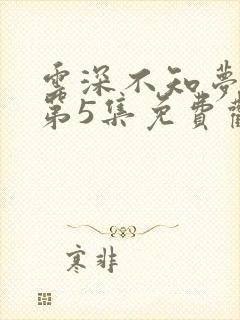 雲深不知夢
第5集免費
寒非